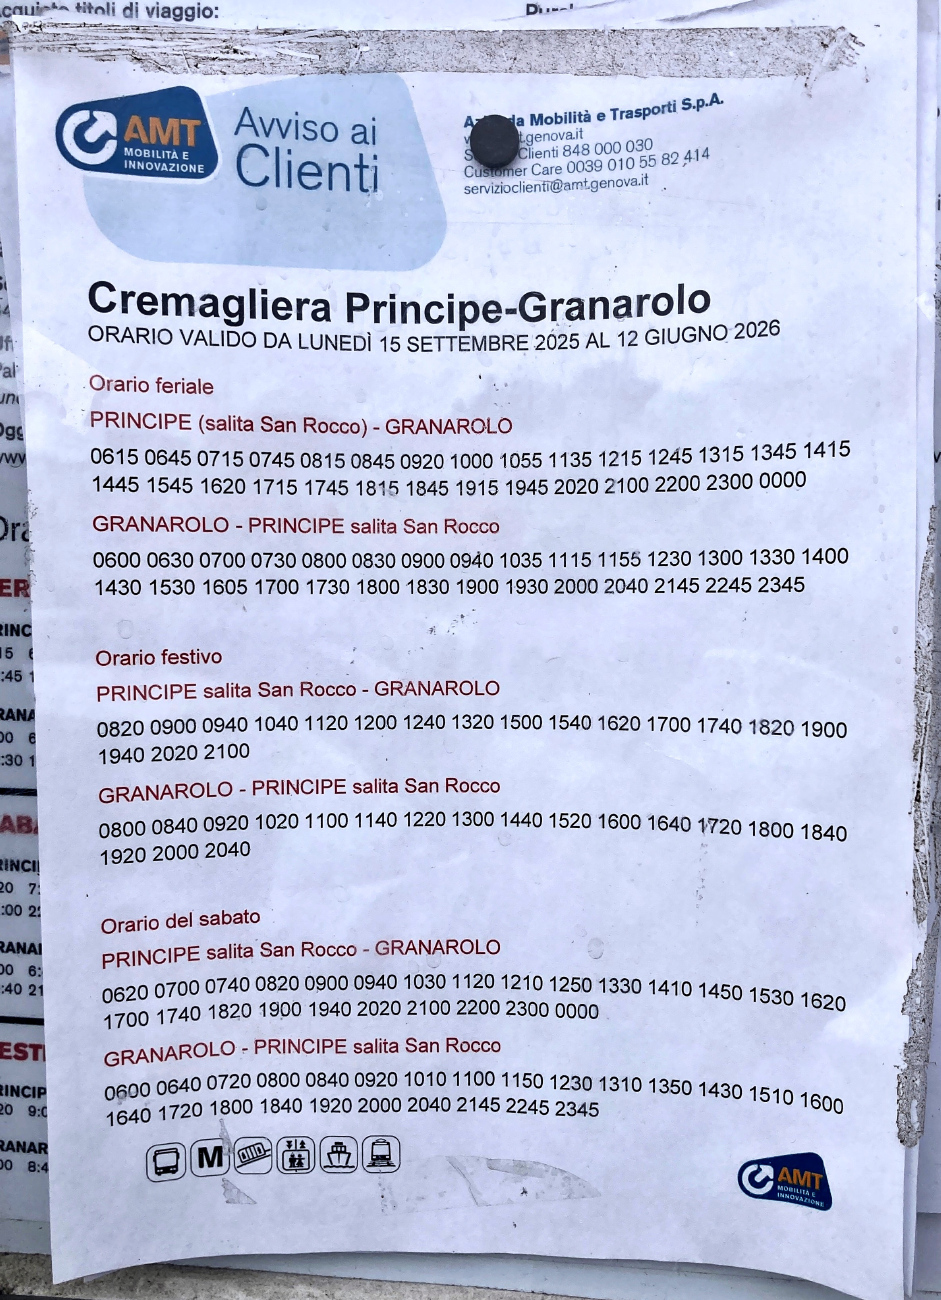 titoli di viaggio:
AMT
MOBILITÀ E
INNOVAZIONE
Avviso ai
Clienti
Mobilità e Trasporti S.p.A.
t.genova.it
Clienti 848 000 030
Customer Care 0039 010 55 82 414
servizioclienti@amt.genova.it
Cremagliera Principe-Granarolo
ORARIO VALIDO DA LUNEDÌ 15 SETTEMBRE 2025 AL 12 GIUGNO 2026
Orario feriale
PRINCIPE (salita San Rocco) - GRANAROLO
0615 0645 0715 0745 0815 0845 0920 1000 1055 1135 1215 1245 1315 1345 1415
1445 1545 1620 1715 1745 1815 1845 1915 1945 2020 2100 2200 2300 0000
GRANAROLO - PRINCIPE salita San Rocco
0600 0630 0700 0730 0800 0830 0900 0940 1035 1115 1155 1230 1300 1330 1400
1430 1530 1605 1700 1730 1800 1830 1900 1930 2000 2040 2145 2245 2345
Orario festivo
PRINCIPE salita San Rocco - GRANAROLO
0820 0900 0940 1040 1120 1200 1240 1320 1500 1540 1620 1700 1740 1820 1900
1940 2020 2100
GRANAROLO - PRINCIPE salita San Rocco
0800 0840 0920 1020 1100 1140 1220 1300 1440 1520 1600 1640 1720 1800 1840
1920 2000 2040
Orario del sabato
PRINCIPE salita San Rocco - GRANAROLO
0620 0700 0740 0820 0900 0940 1030 1120 1210 1250 1330 1410 1450 1530 1620
1700 1740 1820 1900 1940 2020 2100 2200 2300 0000
GRANAROLO - PRINCIPE salita San Rocco
0600 0640 0720 0800 0840 0920 1010 1100 1150 1230 1310 1350 1430 1510 1600
1640 1720 1800 1840 1920 2000 2040 2145 2245 2345
M
AMT
MOBILITÀ E
INNOVAZIONE